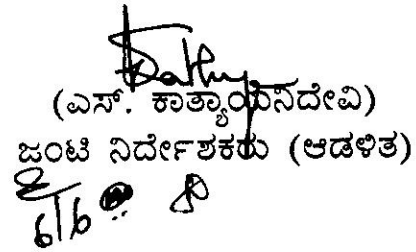 (ಎಸ್. ಕಾತ್ಯಾಯಿನಿದೇವಿ)
ಜಂಟಿ ನಿರ್ದೇಶಕರು (ಆಡಳಿತ)
6/6